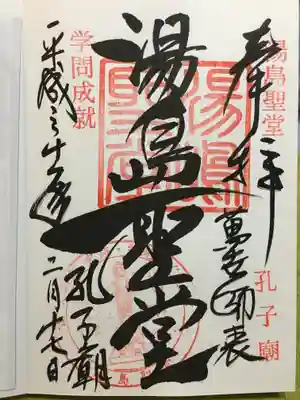 湯島聖堂
奉拝
萬世師表
孔子廟
湯島聖堂
孔子廟
平成三十年
二月十七日
学問成就
湯島聖堂